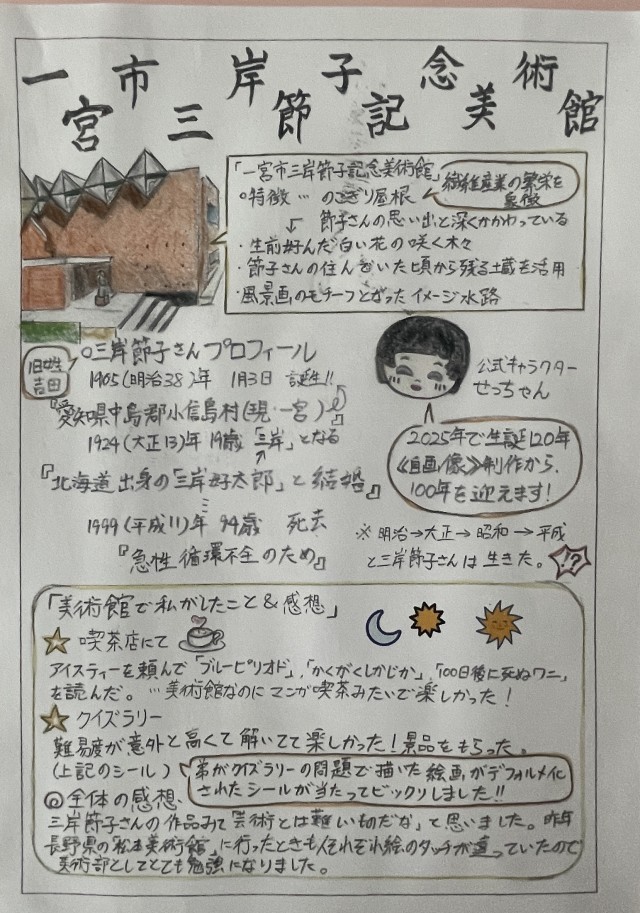 一宮市三岸節子記念美術館
「一宮市三岸節子記念美術館」
繊維産業の繁栄を
象徴
○特徴…のこぎり屋根
節子さんの思い出と深くかかわっている
・生前好んだ白い花の咲く木々
・節子さんの住んでいた頃から残る土蔵を活用
・風景画のモチーフとなったイメージ水路
旧姓
吉田
○三岸節子さんプロフィール
1905(明治38)年 1月3日 誕生!!
『愛知県中島郡小信島村(現・一宮)』
1924(大正13)年 19歳 「三岸」となる
『北海道出身の「三岸好太郎」と結婚』
1999(平成11)年 94歳 死去
『急性循環不全のため』
公式キャラクター
せっちゃん
2025年で生誕120年
《自画像》制作から、
100年を迎えます!
※明治→大正→昭和→平成
と三岸節子さんは生きた。
!?
「美術館で私がしたこと&感想」
☆喫茶店にて
アイスティーを頼んで「ブルーピリオド」,「かくがくしかじか」,「100日後に死ぬワニ」
を読んだ。…美術館なのにマンガ喫茶みたいで楽しかった!
☆クイズラリー
難易度が意外と高くて解いてて楽しかった!景品をもらった。
(上記のシール)
弟がクイズラリーの問題で描いた絵画がデフォルメ化
されたシールが当たってビックリしました!!
◎全体の感想、
三岸節子さんの作品みて「芸術とは難しいものだな」と思いました。昨年
長野県の「松本美術館」に行ったときも人それぞれ絵のタッチが違っていたので
美術部としてとても勉強になりました。